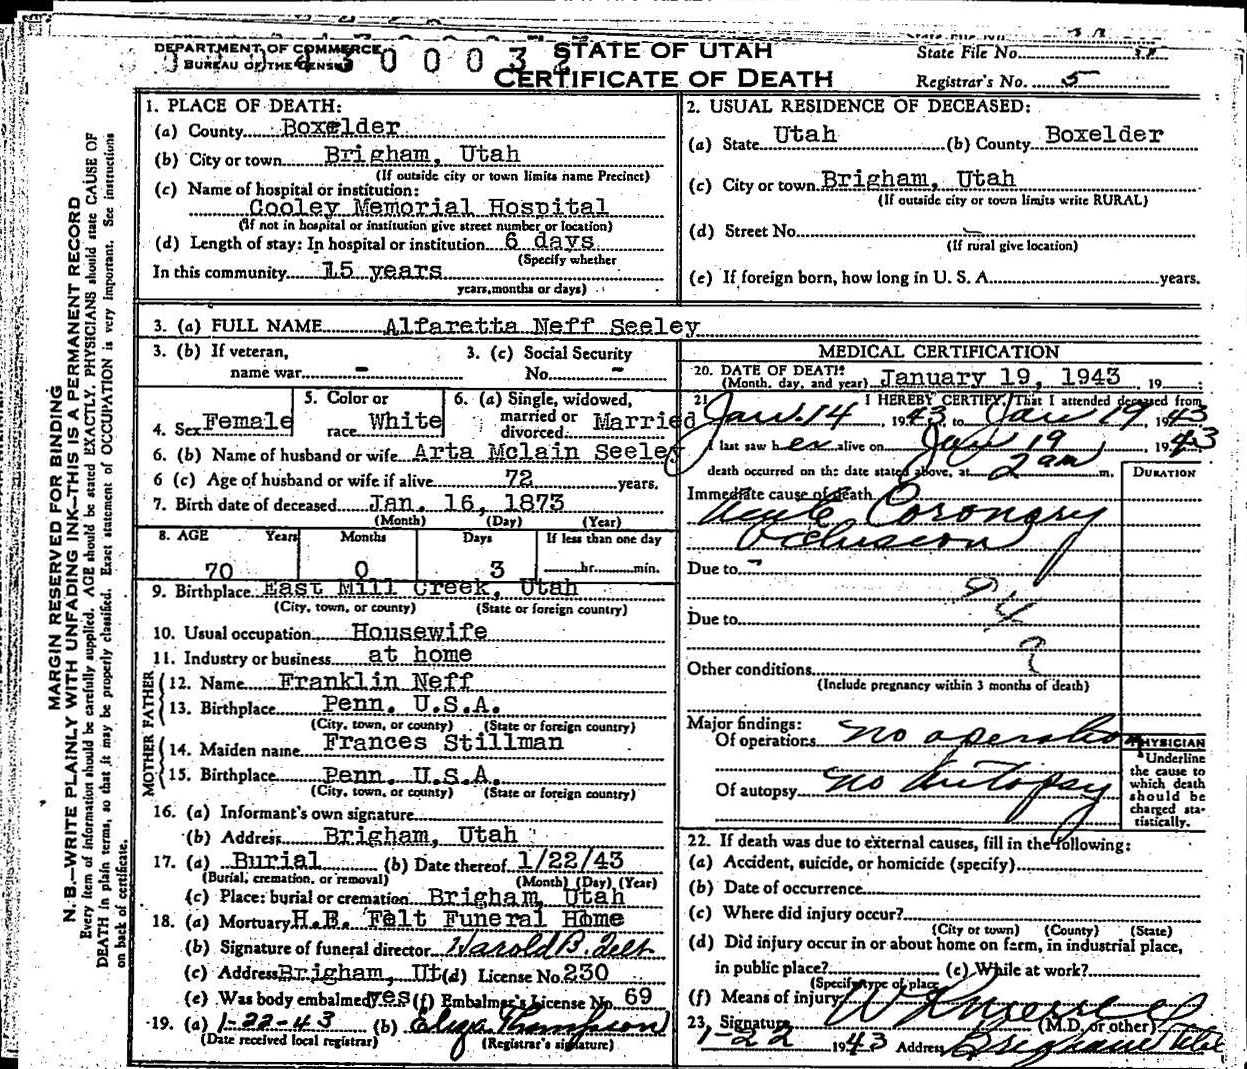 DEPARTMENT OF COMMERCE
BUREAU OF THE CENSUS
STATE OF UTAH
CERTIFICATE OF DEATH
State File No.
Registrar's No. 5
MARGIN RESERVED FOR BINDING
N. B.—WRITE PLAINLY WITH UNFADING INK—THIS IS A PERMANENT RECORD
Every item of information should be carefully supplied. AGE should be stated EXACTLY. PHYSICIANS should state CAUSE OF
DEATH in plain terms, so that it may be properly classified. Exact statement of OCCUPATION is very important. See instructions
on back of certificate.
1. PLACE OF DEATH:
(a) County Boxelder
(b) City or town Brigham, Utah
(If outside city or town limits name Precinct)
(c) Name of hospital or institution:
Cooley Memorial Hospital
(If not in hospital or institution give street number or location)
(d) Length of stay: In hospital or institution 6 days
(Specify whether
In this community 15 years
years, months or days)
2. USUAL RESIDENCE OF DECEASED:
(a) State Utah (b) County Boxelder
(c) City or town Brigham, Utah
(If outside city or town limits write RURAL)
(d) Street No.
(If rural give location)
(e) If foreign born, how long in U. S. A. years.
3. (a) FULL NAME Alfaretta Neff Seeley
3. (b) If veteran, 3. (c) Social Security
name war - No. -
4. Sex Female 5. Color or race White 6. (a) Single, widowed, married or divorced Married
6. (b) Name of husband or wife Arta Mclain Seeley
6 (c) Age of husband or wife if alive 72 years.
7. Birth date of deceased Jan. 16, 1873
(Month) (Day) (Year)
8. AGE Years Months Days If less than one day
70 0 3 hr. min.
9. Birthplace East Mill Creek, Utah
(City, town, or county) (State or foreign country)
10. Usual occupation Housewife
11. Industry or business at home
FATHER
12. Name Franklin Neff
13. Birthplace Penn. U.S.A.
(City, town, or county) (State or foreign country)
MOTHER
14. Maiden name Frances Stillman
15. Birthplace Penn. U.S.A.
(City, town, or county) (State or foreign country)
16. (a) Informant's own signature
(b) Address Brigham, Utah
17. (a) Burial (b) Date thereof 1/22/43
(Burial, cremation, or removal) (Month) (Day) (Year)
(c) Place: burial or cremation Brigham, Utah
18. (a) Mortuary H.B. Felt Funeral Home
(b) Signature of funeral director Harold B. Felt
(c) Address Brigham, Ut (d) License No. 230
(e) Was body embalmed yes (f) Embalmer's License No. 69
19. (a) 1-22-43 (b) Eliza Thompson
(Date received local registrar) (Registrar's signature)
MEDICAL CERTIFICATION
20. DATE OF DEATH:
(Month, day, and year) January 19, 1943, 19
21. I HEREBY CERTIFY, That I attended deceased from
Jan. 14, 1943, to Jan 19, 1943
I last saw her alive on Jan 19, 1943
death occurred on the date stated above, at 2 am m.
DURATION
Immediate cause of death
Acute Coronary
Occlusion
Due to -
94
Due to
Other conditions
(Include pregnancy within 3 months of death)
Major findings:
Of operations no operation
Of autopsy no Autopsy
PHYSICIAN
Underline
the cause to
which death
should be
charged sta-
tistically.
22. If death was due to external causes, fill in the following:
(a) Accident, suicide, or homicide (specify)
(b) Date of occurrence
(c) Where did injury occur?
(City or town) (County) (State)
(d) Did injury occur in or about home on farm, in industrial place,
in public place? (e) While at work?
(Specify type of place)
(f) Means of injury
23. Signature (M.D. or other)
1-22 1943 Address Brigham Utah